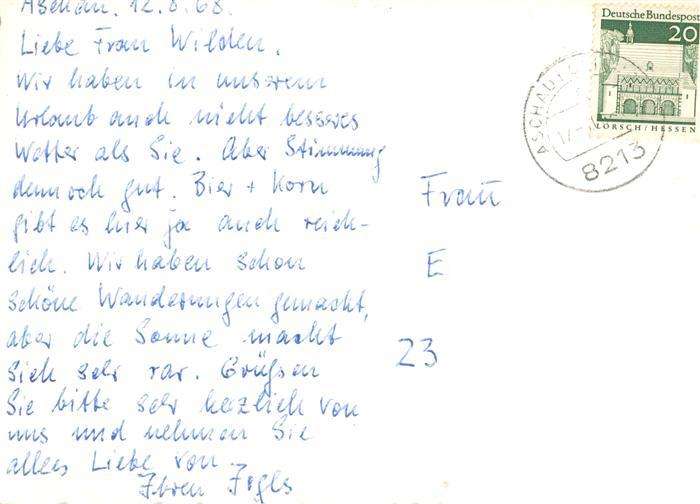 Aschau, 12.8.68.
Liebe Frau Wilden.
Wir haben in unserem
Urlaub auch nicht besseres
Wetter als Sie. Aber Stimmung
dennoch gut. Bier + Korn
gibt es hier ja auch reich-
lich. Wir haben schon
schöne Wanderungen gemacht,
aber die Sonne macht
sich sehr rar. Grüßen
Sie bitte sehr herzlich von
uns und nehmen Sie
alles Liebe von
Ihren
Deutsche Bundespost
20
LORSCH/HESSEN
ASCHAU
8213
Frau
E
23